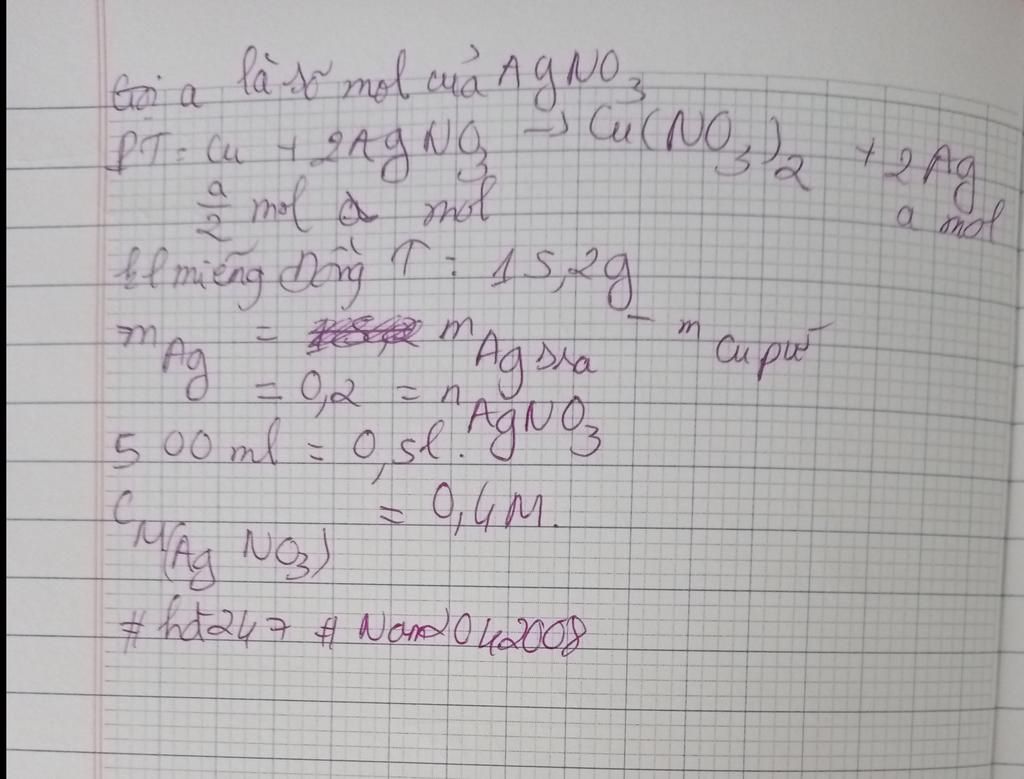 Gọi a là số mol của AgNO3
PT: Cu + 2AgNO3 → Cu(NO3)2 + 2Ag
a/2 mol a mol a mol
Kl miếng Đồng T : 15,2g
mAg = mAg sra - mCu pư
= 0,2 = nAgNO3
500ml = 0,5l.
CM(AgNO3) = 0,4M.
#hdt247 # Nam2042008